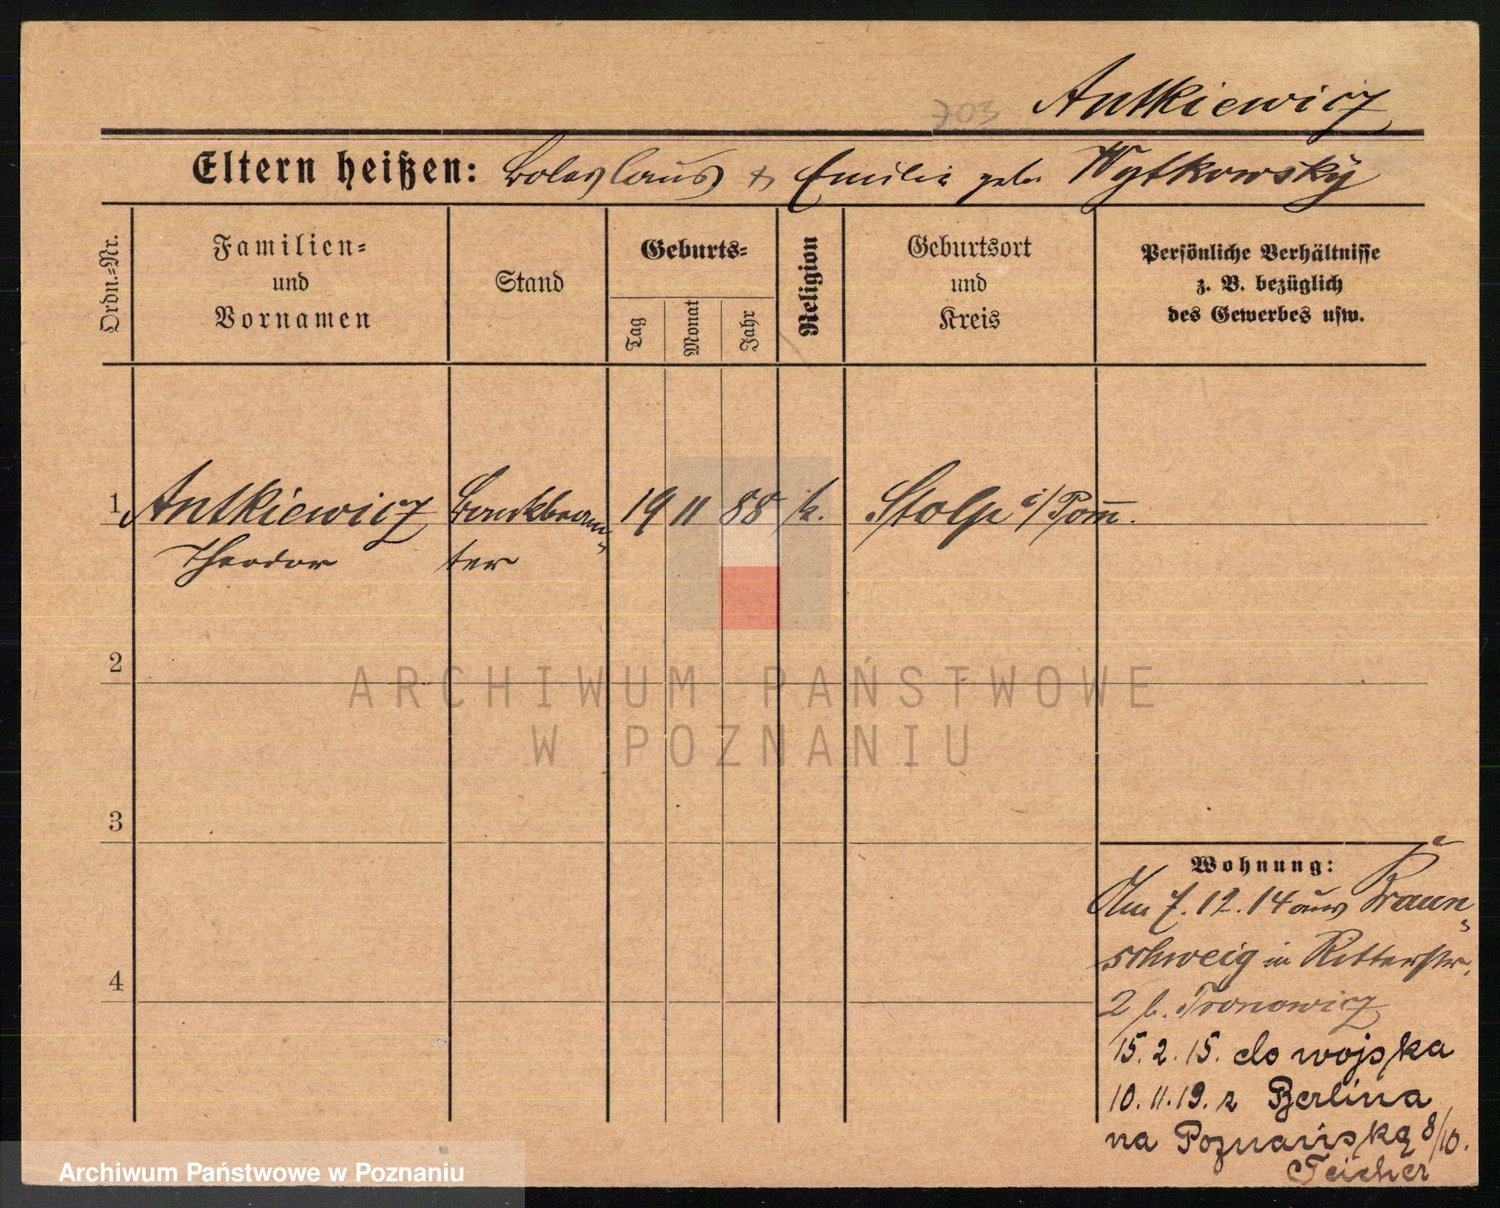 703 Antkiewicz
Eltern heißen: Boleslaus & Emilie geb. Wytkowsky
Ordn.=Nr.
Familien=
und
Vornamen
Stand
Geburts=
Tag
Monat
Jahr
Religion
Geburtsort
und
Kreis
Persönliche Verhältnisse
z. B. bezüglich
des Gewerbes usw.
1 Antkiewicz Bankbeam= 19 11 88 k. Stolp i/Pomm.
Theodor ter
2
ARCHIWUM PAŃSTWOWE
W POZNANIU
3
Wohnung:
Am 7.12.14 aus Braun=
schweig in Ritterstr.
2 b. Tronowicz
15.2.15. do wojska
10.11.19. z Berlina
na Poznańską 8/10.
Teicher
4
Archiwum Państwowe w Poznaniu